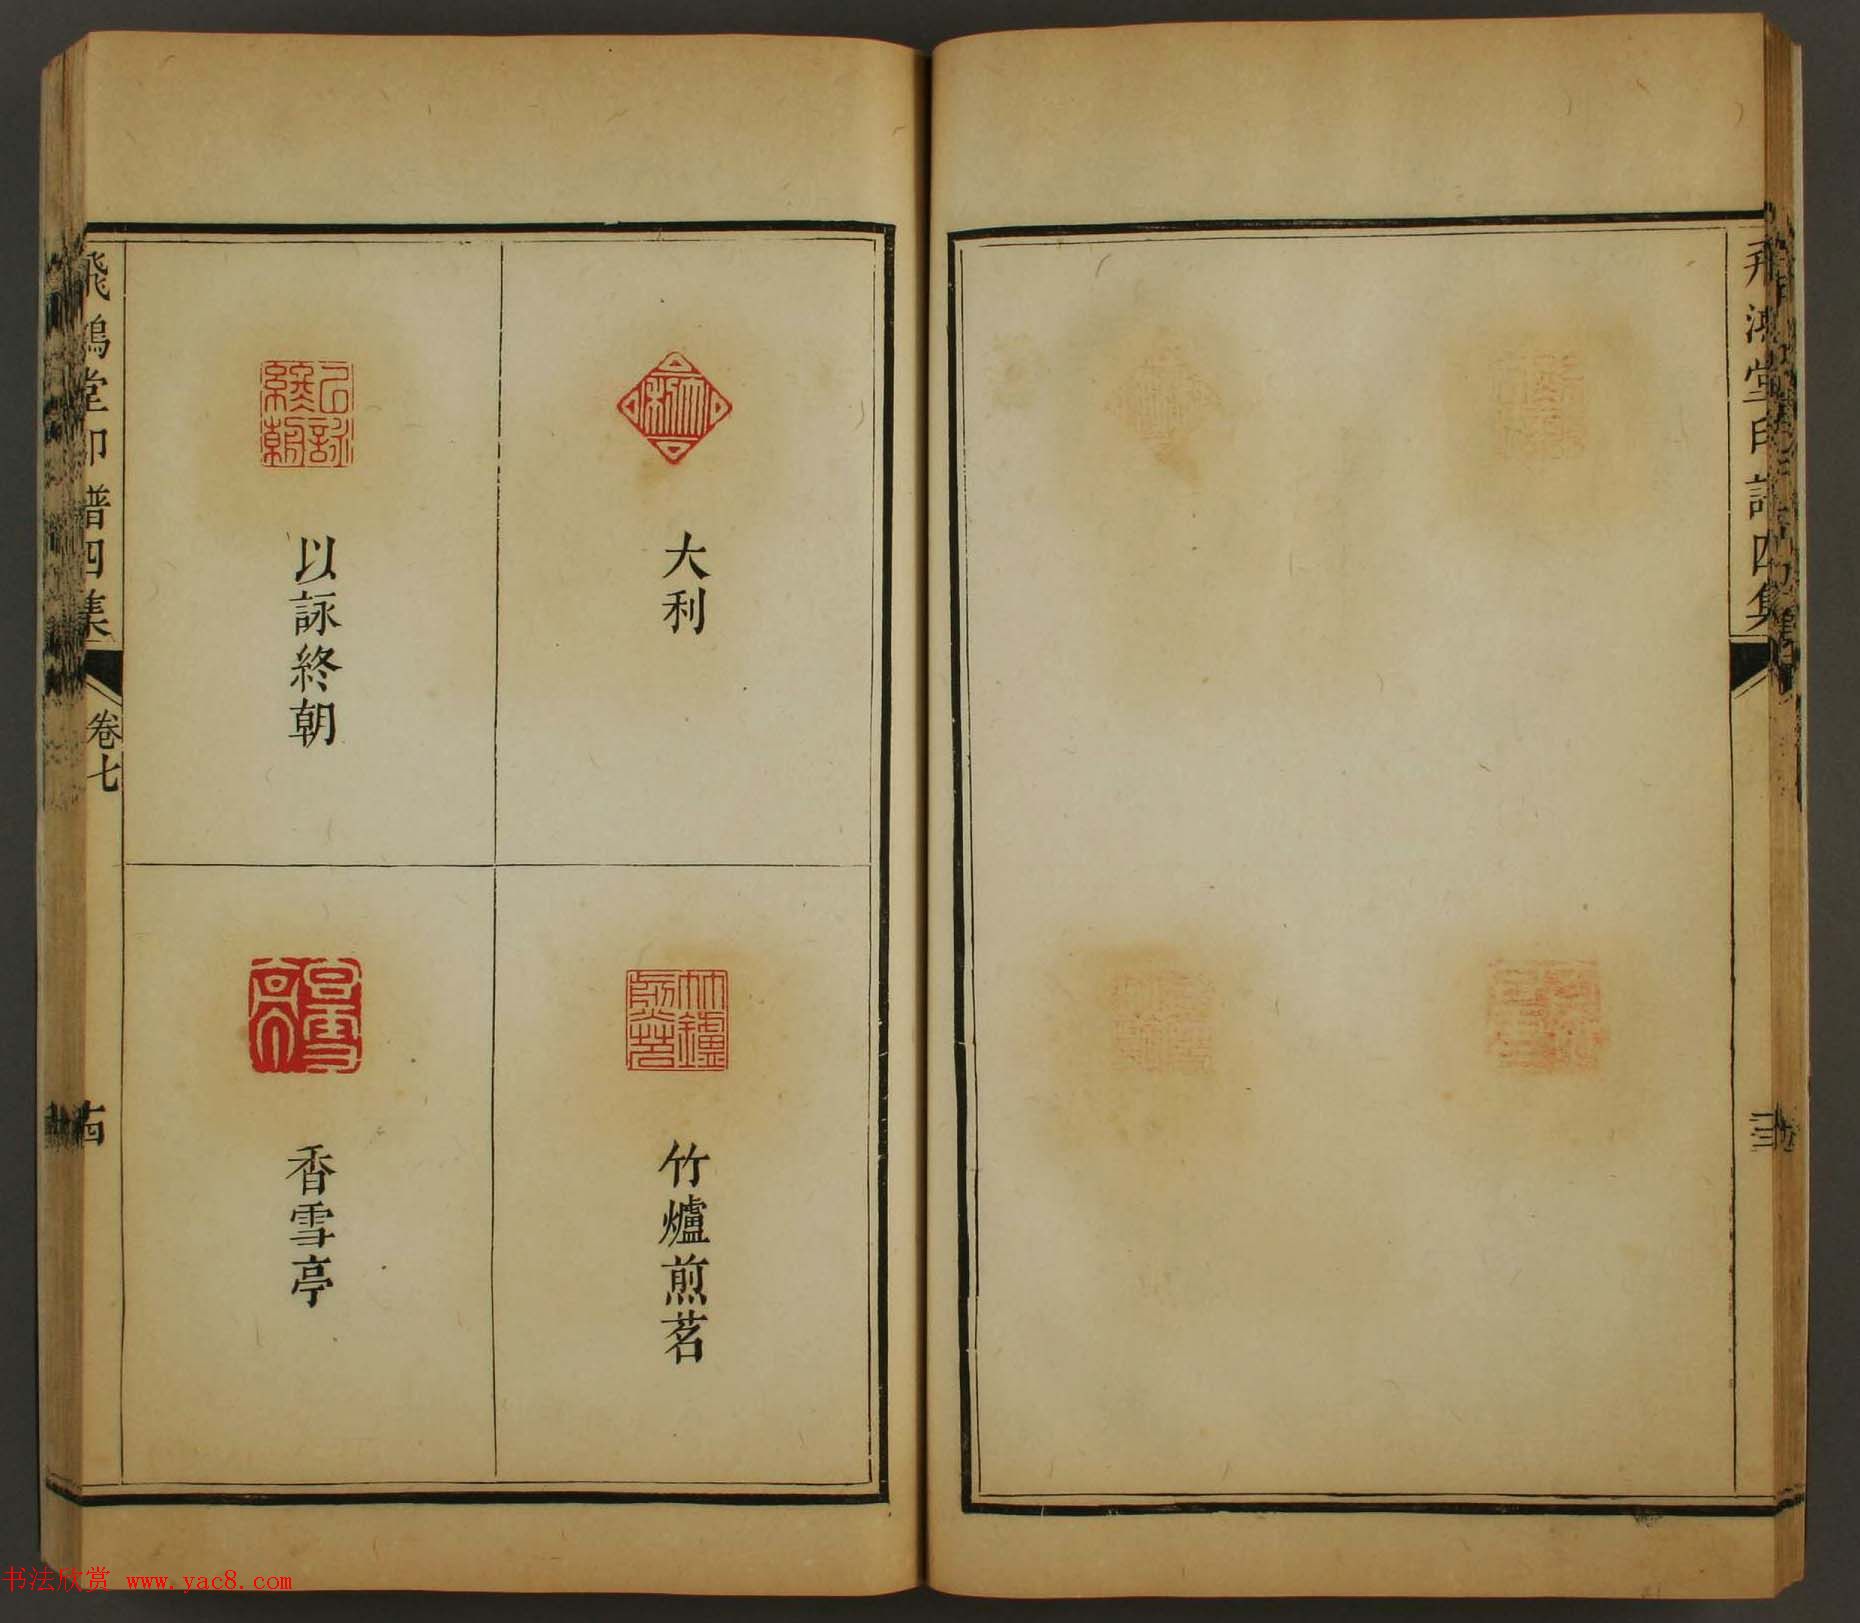 飛鴻堂印譜四集
大利
竹爐煎茗
以詠終朝
香雪亭
飛鴻堂印譜四集
卷七
十四
书法欣赏 www.yac8.com